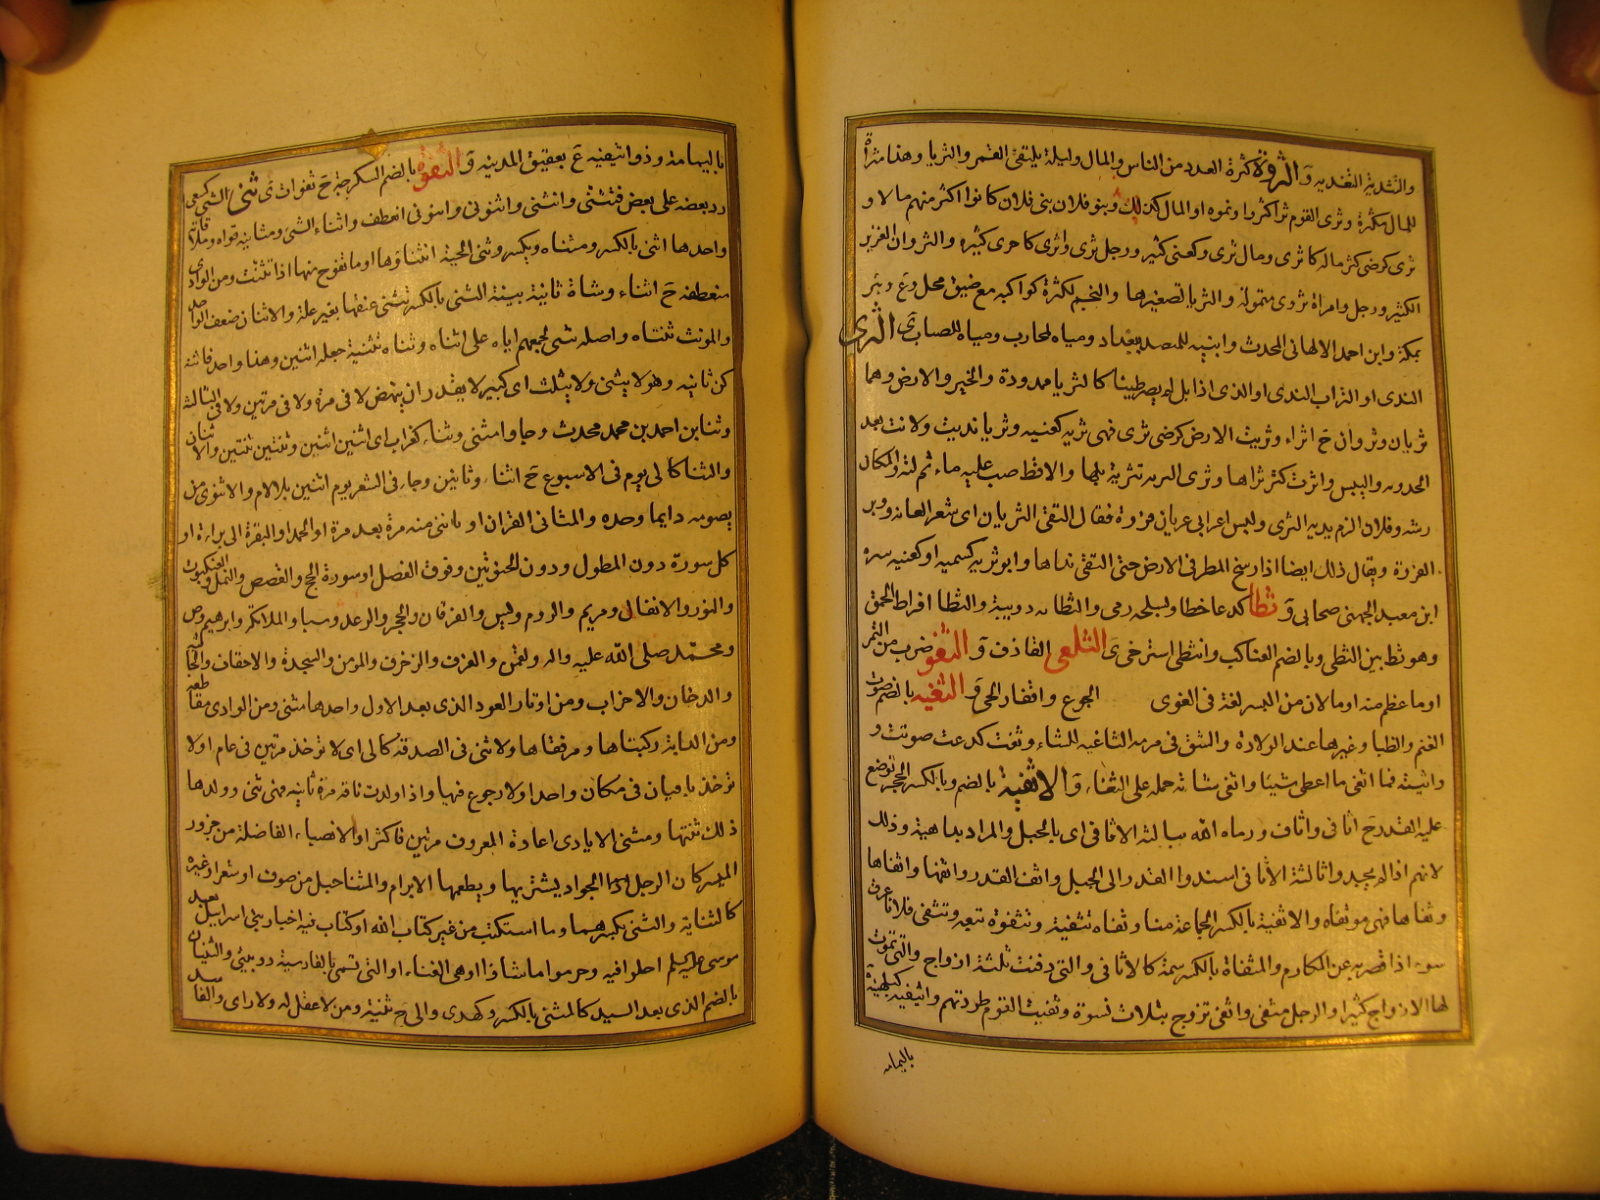 والتشدية التغدية وَ الثروة كثرة العدد من الناس والمال وليلة يلتقى القمر والثريا وهذا مثراة
للمال مكثرة وثرى القوم ثرا كثروا ونموه او المال كذلك وبنو فلان بنى فلان كانوا اكثر منهم مالا و
ثرى كرضى كثر ماله كاثرى ومال ثرى وكغنى كثير ورجل ثرى واثرى كاحرى كثيره والثروان الغزير
الكثير ورجل وامراة ثروى متمولة والثريا تصغيرها والنجم لكثرة كواكبه مع ضيق محل وع وبئر
بمكة وابن احمد الالهانى المحدث وابنيه للمعتضد ببغداد ومياه لمحارب ومياه للصباب ى الثرى
الندى او التراب الندى او الذى اذا بل لم يصر طينا كالثريا ممدودة والخير والارض وهما
ثريان وثروان ج اثراء وثريت الارض كرضى ثرى فهى ثرية كغنيه وثريا نديت ولانت بعد
الجدوبه واليبس واثرت كثر ثراها وثرى التربة تثرية بلها والاقط صب عليه ماء ثم لته والمكان
رشه وفلان الزم يديه الثرى ولبس اعرابى عريان فروة فقال التقى الثريان اى شعر العانة ووبر
الفروة ويقال ذلك ايضا اذا رسخ المطر فى الارض حتى التقى نداها وابو ثريه كسميه او كغنيه سبرة
ابن معبد الجهنى صحابى وَ ثطا كدعا خطا وبسلحه رمى والثطاه دويبة والثطا افراط الحمق
وهو ثط بين الثطى وبالضم العناكب وانثطى استرخى ىَ الثلعى القاذف وَ الثغو ضرب من التمر
او ما عظم منه او ما لان من البسر لغة فى الغوى الجوع واقفار الحى وَ الثغيه بالضم صوت
الغنم والظبا وغيرها عند الولادة والشق فى مرمه الشاغيه للشاء وثغت كدعت صوتت و
واتيته فما اثغى ما اعطى شيئا واثغى شاته حمله على الثغاء وَ الاثفية بالضم وبالكسر الحجر توضع
عليه القدر ج اثافى واثاف ورماه الله بثالثة الاثافى اى بالجبل والمراد بداهية وذلك
لانهم اذا لم يجدوا ثالثة الأثافى اسندوا القدر الى الجبل واثف القدر واثفها واثفاها
وثفاها فهى موثفاه والاثفية بالكسر الجماعة منا وثفاه تثفية وتثفوة تبعه وتثفى فلانا عرق
سوء اذا قصر به عن المكارم والمثفاة بالكسر سمة كالاثافى والتى دفنت ثلثة ازواج والتى تموت
لها الازواج كثيرا والرجل مثفى واثفى تزوج بثلاث نسوة وثفيت القوم طردتهم واثيفيه كبلهنية
باليمامه
باليمامة وذو اثيفيه ع بعقيق المدينه وَ الثفوة بالضم السكرجة ج ثفوات ىَ ثنى الشئ كسعى
رد بعضه على بعض فتثنى وانثنى واثنونى واثنونى انعطف واثناء الشئ ومثانيه قواه وطاقاته
واحدها ثنى بالكسر ومثناه ويكسر وثنى الحية انثناؤها او ما تعوج منها اذا تثنت ومن الوادى
منعطفه ج اثناء وشاة ثانية بينة الثنى بالكسر تثنى عنقها بغير علة والاثنان ضعف الواحد
والمونث ثنتاه واصله ثنى لجمعهم اياه على اثناه وثناه تثنية جعله اثنين وهنا واحد فاثنه
كن ثانيه وهو لا يثنى ولا يثلث اى كبير لا يقدر ان ينهض لا فى مرة ولا فى مرتين ولا فى الثالثة
وثنا بن احمد بن محمد محدث وجاوا مثنى وثناء كغراب اى اثنين اثنين وثنتين ثنتين والاثنان
والثنا كالى يوم فى الاسبوع ج اثناء وثانين وجاء فى الشعر يوم اثنين بلا لام والاثنوى من
يصومه دايما وحده والمثانى القران او ما ثنى منه مرة بعد مرة او الحمد او البقرة الى براءة او
كل سورة دون الطول ودون المئين وفوق المفصل او سورة الحج والقصص والنمل والعنكبوت
والنور والانفال ومريم والروم ويس والفرقان والحجر والرعد وسبا والملائكة وابراهيم وص
ومحمد صلى الله عليه واله ولقمن والغرف والزخرف والمومن والسجدة والاحقاف والجاثية
والدخان والاحزاب ومن اوتار العود الذى بعد الاول واحدها مثنى ومن الوادى معاطفه
ومن الدابة ركبتاها ومرفقاها ولا ثنى فى الصدقة كالى اى لا توخذ مرتين فى عام او لا
توخذ ناقتان فى مكان واحد او لا رجوع فيها واذا ولدت ناقة مرة ثانيه فهى ثنى وولدها
ذلك ثنتها ومثنى الايادى اعادة المعروف مرتين فاكثر او الانصباء الفاضلة من جزور
الميسر كان الرجل الجواد يشتريها ويطعمها الابرام والمثناة حبل من صوف او شعر او غيره
كالثناية والثنى بكسرهما وما استكتب من غير كتاب الله او كتاب فيه اخبار بنى اسرائيل بعد
موسى عليه السلم احلوا فيه وحرموا ما شاؤا او هى الغناء او التى تسمى بالفارسية دوبيتى والثنيان
بالضم الذى بعد السيد كالمثنى بالكسر وكهدى والى ج ثنية ومن لا عقل له ولا راى والفاسد